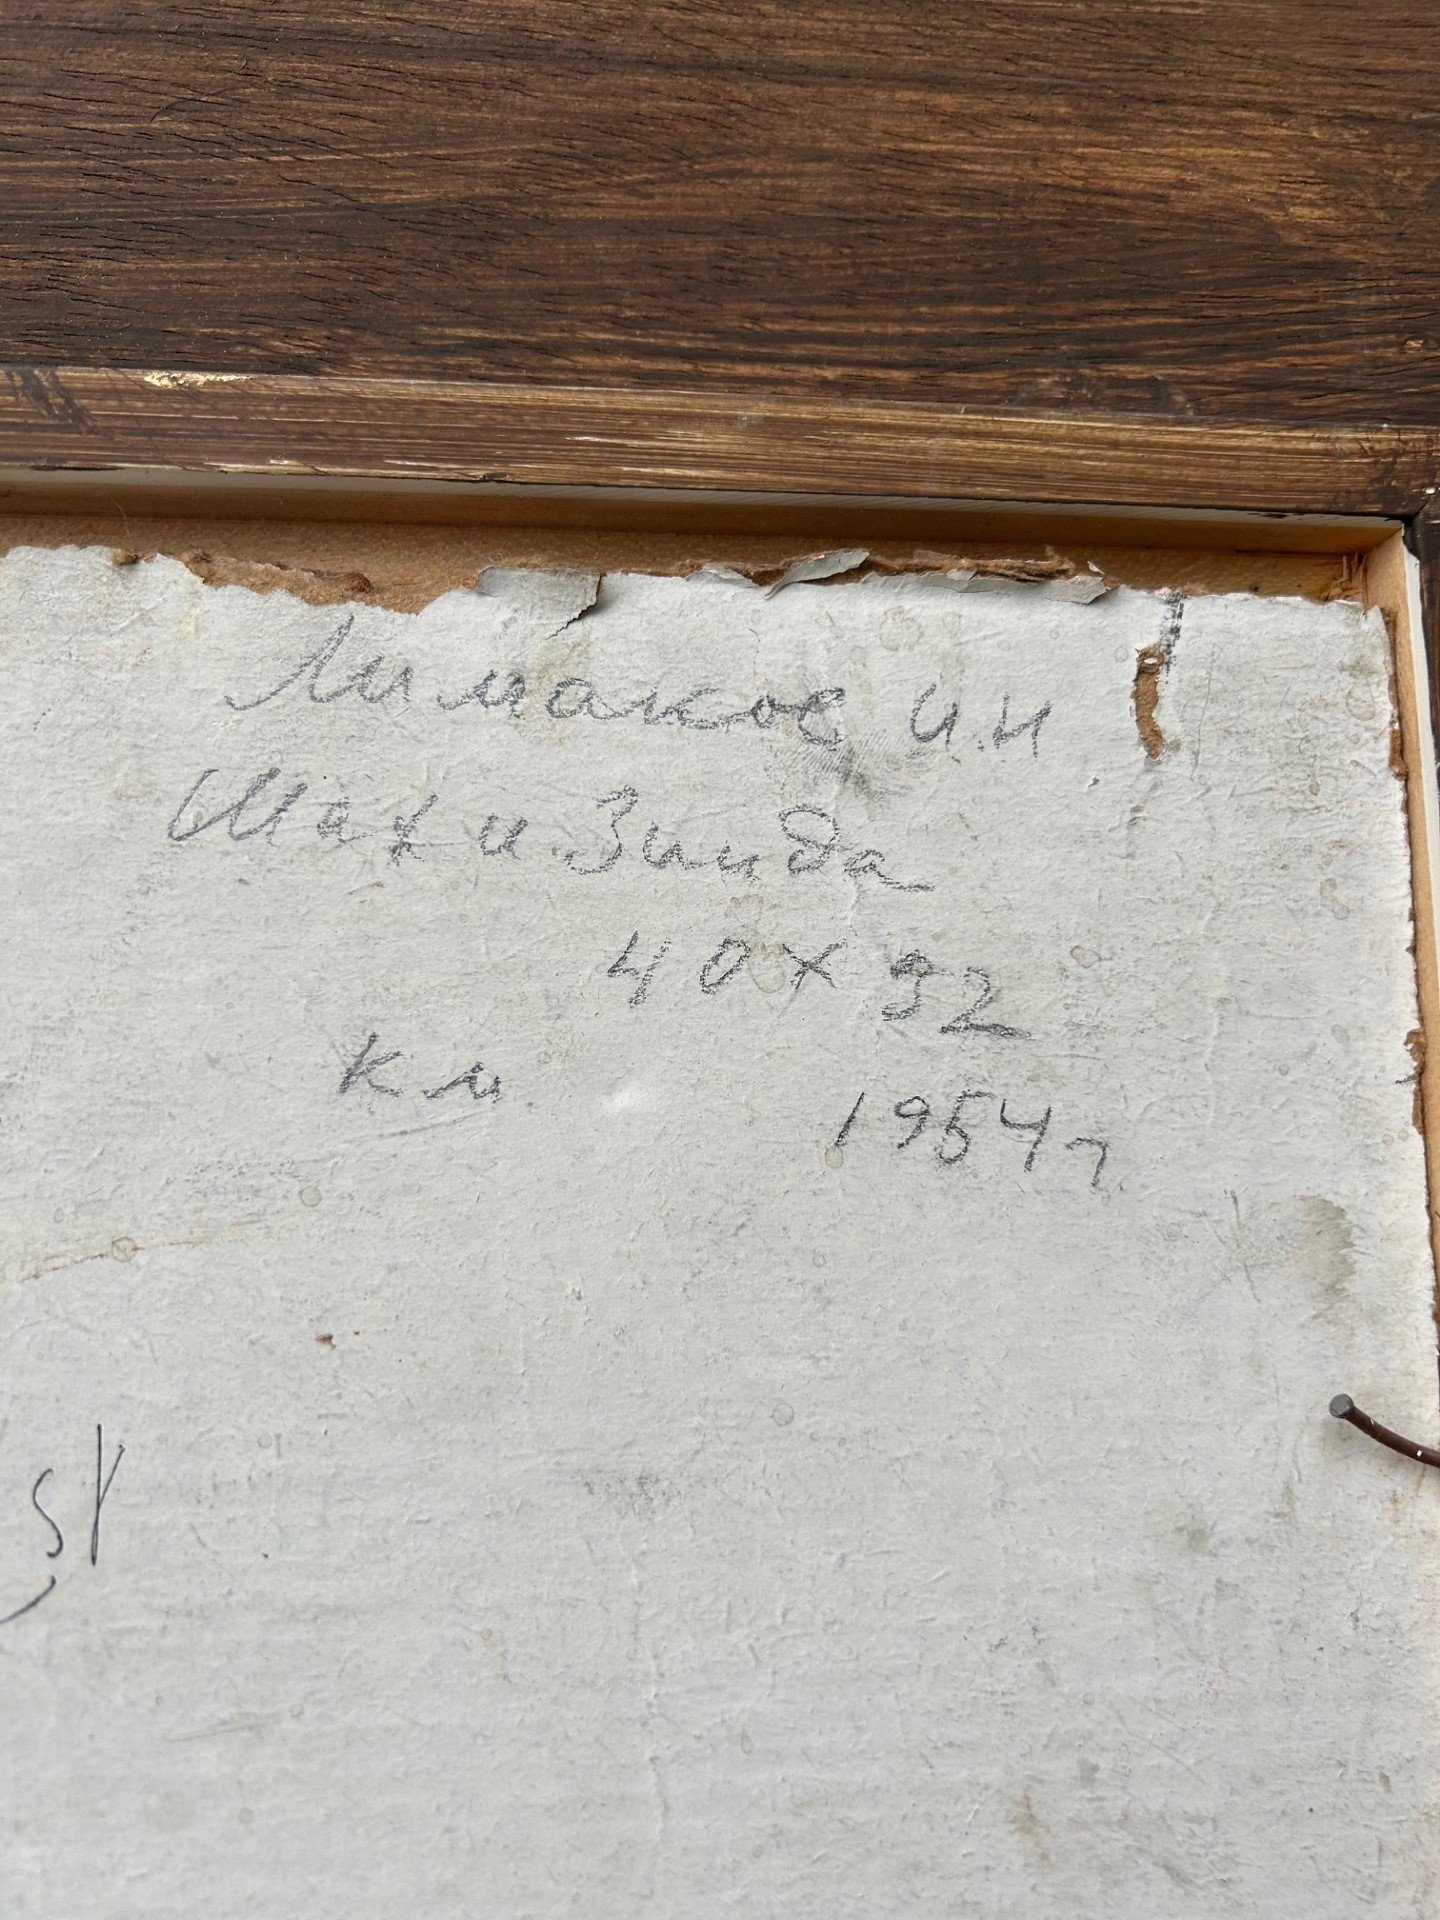 Лимаков И.И
Шах и Зинда
40 x 92
К м
1954 г